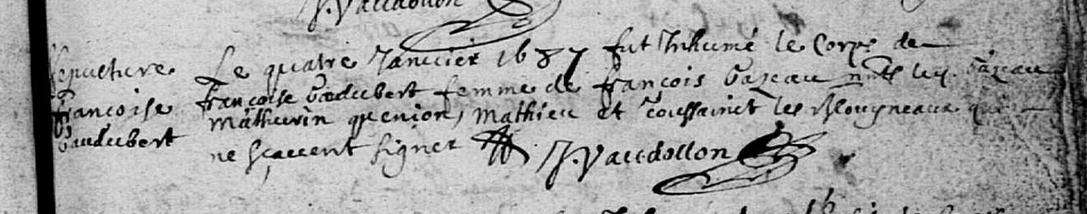 J. Vaudollon
Sepulture Le quatre Janvier 1687 fut Inhumé le Corps de
francoise francoise baudubert femme de francois bazeau ntts led. bazeau
baudubert mathurin quenion, mathieu et toussainct les Mougneaux qui
ne scavent signer J. Vaudollon